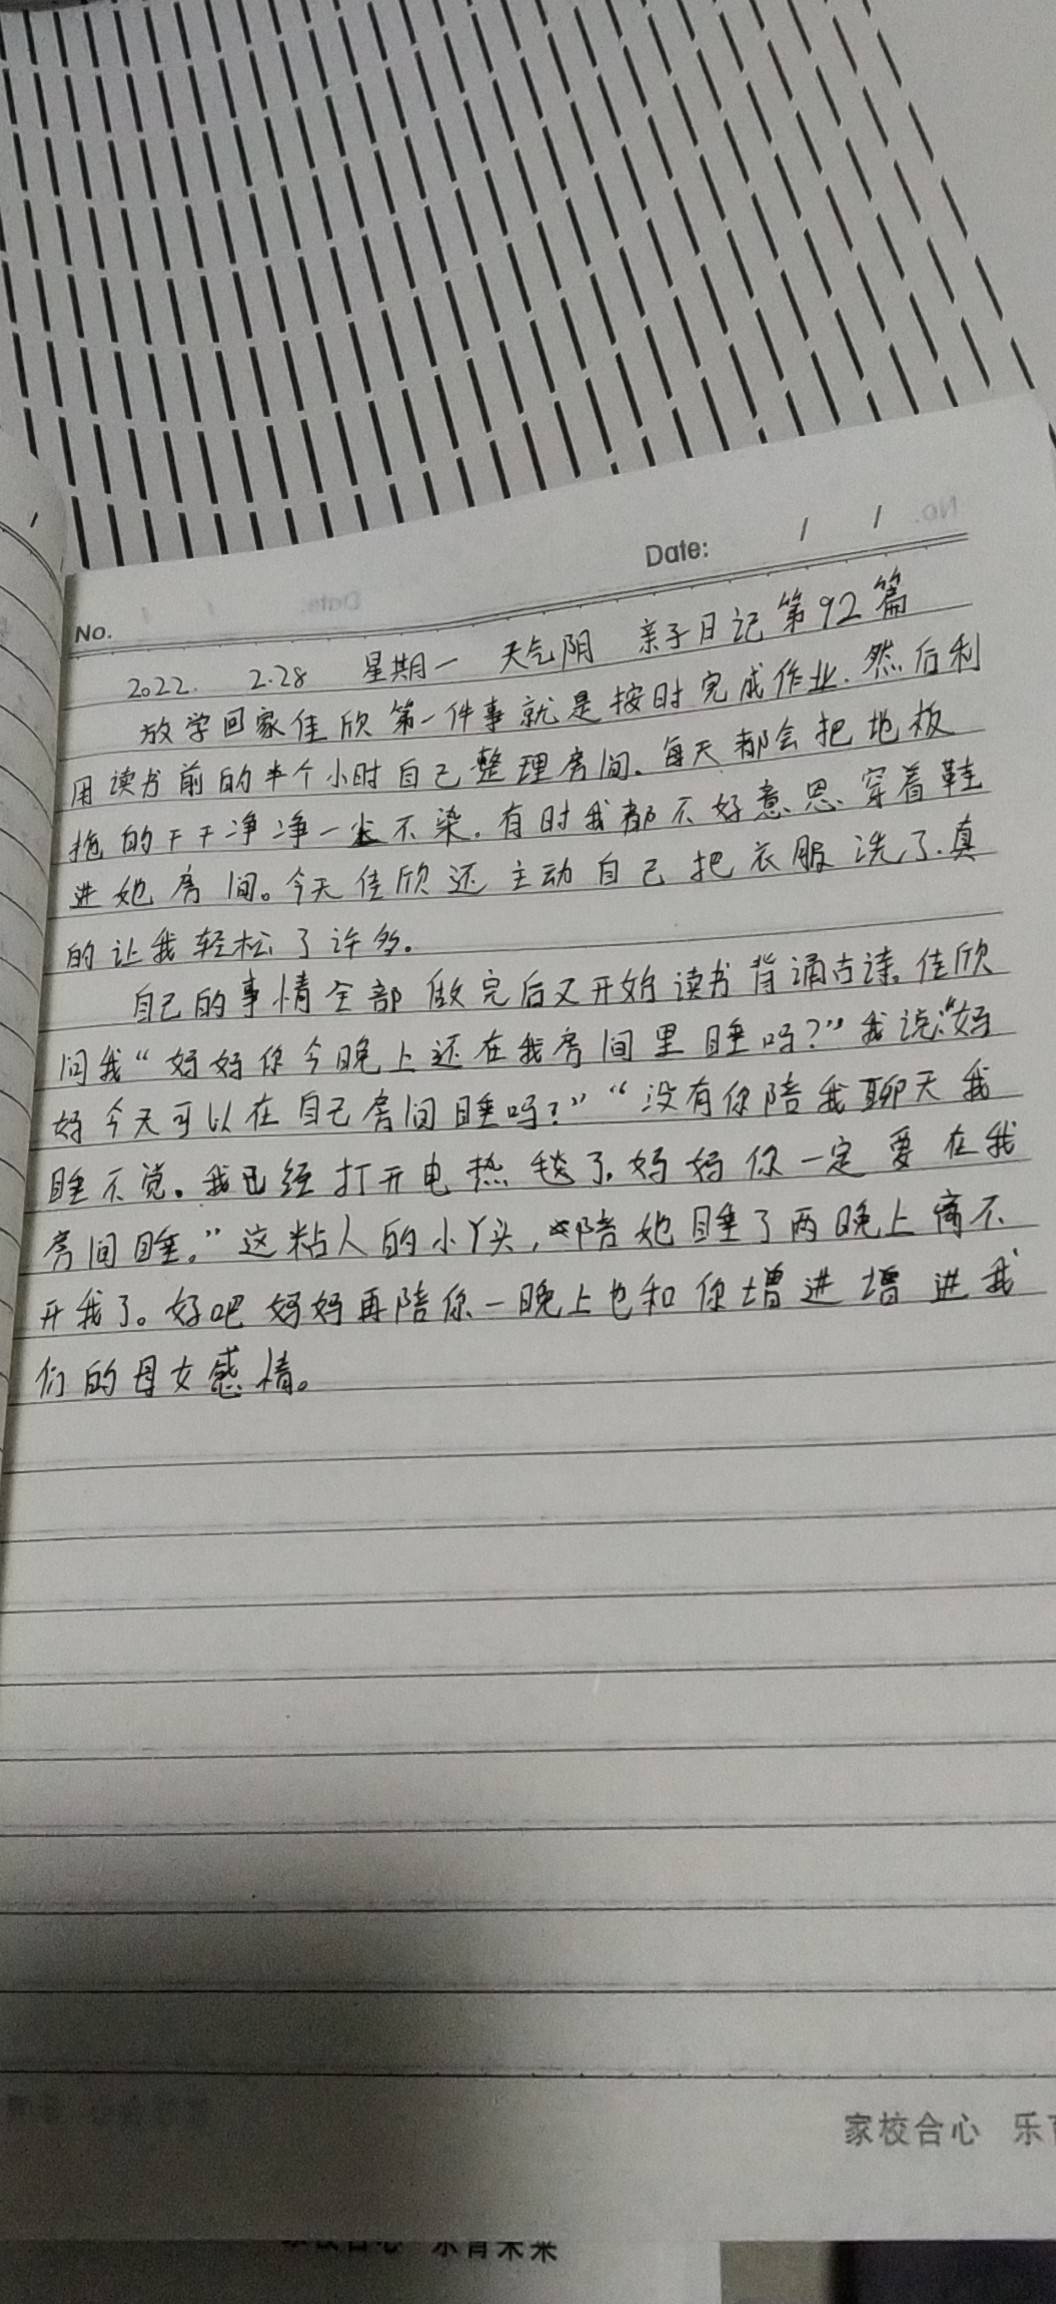 Date: / /
No.
2022. 2.28 星期一 天气阴 亲子日记第92篇
放学回家佳欣第一件事就是按时完成作业.然后利
用读书前的半个小时自己整理房间.每天都会把地板
拖的干干净净一尘不染.有时我都不好意思穿着鞋
进她房间。今天佳欣还主动自己把衣服洗了.真
的让我轻松了许多.
自己的事情全部做完后又开始读书背诵古诗.佳欣
问我“妈妈你今晚上还在我房间里睡吗?”我说:“妈
妈今天可以在自己房间睡吗?”“没有你陪我聊天我
睡不觉。我已经打开电热毯了.妈妈你一定要在我
房间睡。”这粘人的小丫头,陪她睡了两晚上离不
开我了。好吧妈妈再陪你一晚上也和你增进增进我
们的母女感情。
家校合心 乐